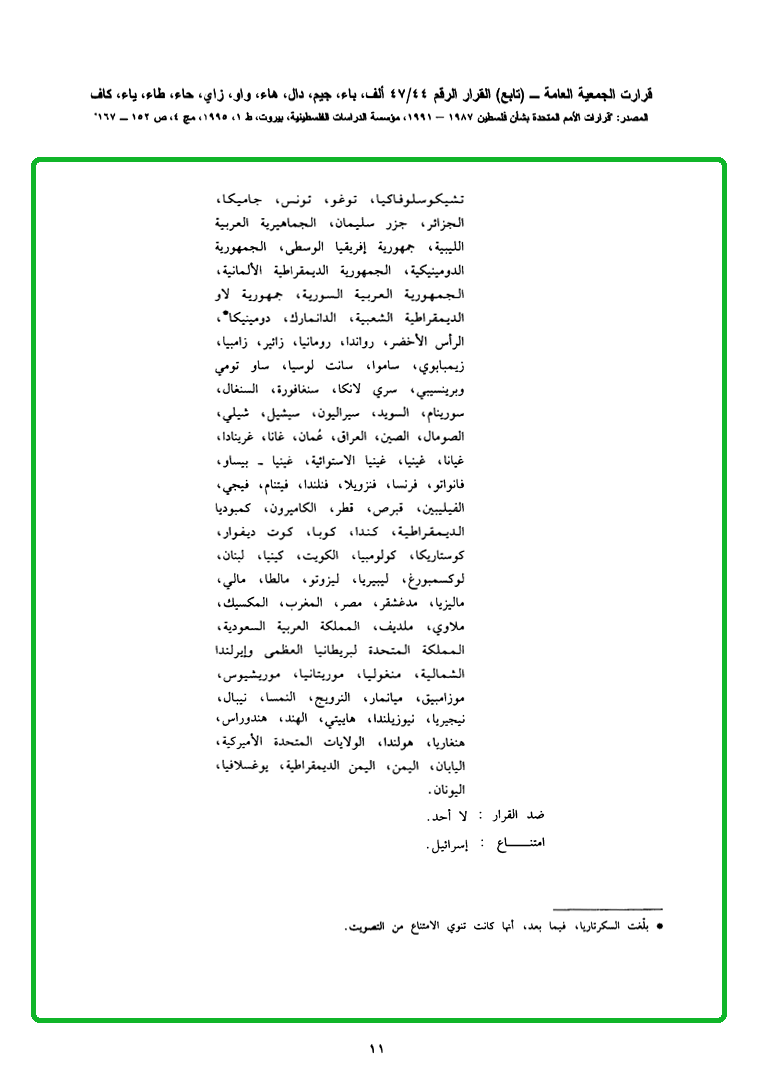 قرارت الجمعية العامة ــ (تابع) القرار الرقم ٤٧/٤٤ ألف، باء، جيم، دال، هاء، واو، زاي، حاء، طاء، ياء، كاف
المصدر: "قرارات الأمم المتحدة بشأن فلسطين ١٩٨٧ – ١٩٩١، مؤسسة الدراسات الفلسطينية، بيروت، ط ١، ١٩٩٥، مج ٤، ص ١٥٢ ــ ١٦٧"
تشيكوسلوفاكيا، توغو، تونس، جاميكا،
الجزائر، جزر سليمان، الجماهيرية العربية
الليبية، جمهورية إفريقيا الوسطى، الجمهورية
الدومينيكية، الجمهورية الديمقراطية الألمانية،
الجمهورية العربية السورية، جمهورية لاو
الديمقراطية الشعبية، الدانمارك، دومينيكا•،
الرأس الأخضر، رواندا، رومانيا، زائير، زامبيا،
زيمبابوي، ساموا، سانت لوسيا، ساو تومي
وبرينسيبي، سري لانكا، سنغافورة، السنغال،
سورينام، السويد، سيراليون، سيشيل، شيلي،
الصومال، الصين، العراق، عُمان، غانا، غرينادا،
غيانا، غينيا، غينيا الاستوائية، غينيا ـ بيساو،
فانواتو، فرنسا، فنزويلا، فنلندا، فيتنام، فيجي،
الفيليبين، قبرص، قطر، الكاميرون، كمبوديا
الديمقراطية، كندا، كوبا، كوت ديفوار،
كوستاريكا، كولومبيا، الكويت، كينيا، لبنان،
لوكسمبورغ، ليبيريا، ليزوتو، مالطا، مالي،
ماليزيا، مدغشقر، مصر، المغرب، المكسيك،
ملاوي، ملديف، المملكة العربية السعودية،
المملكة المتحدة لبريطانيا العظمى وإيرلندا
الشمالية، منغوليا، موريتانيا، موريشيوس،
موزامبيق، ميانمار، النرويج، النمسا، نيبال،
نيجيريا، نيوزيلندا، هاييتي، الهند، هندوراس،
هنغاريا، هولندا، الولايات المتحدة الأميركية،
اليابان، اليمن، اليمن الديمقراطية، يوغسلافيا،
اليونان.
ضد القرار : لا أحد.
امتنـــــاع : إسرائيل.
• بلّغت السكرتاريا، فيما بعد، أنها كانت تنوي الامتناع من التصويت.
١١